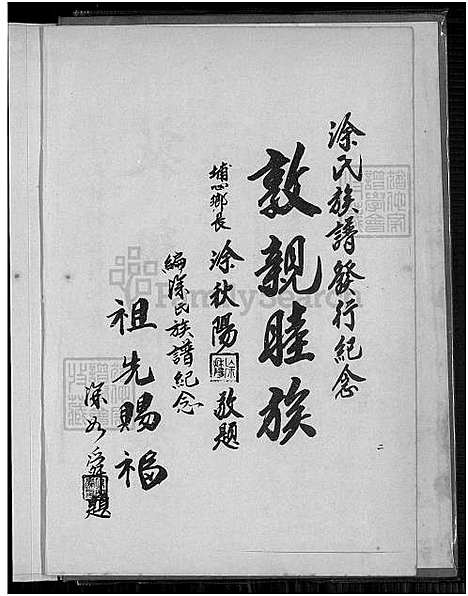 涂氏族譜發行紀念
敦親睦族
埔心鄉長 涂秋陽 敬題
編涂氏族譜紀念
祖先賜福
涂 題
二
FamilySearch